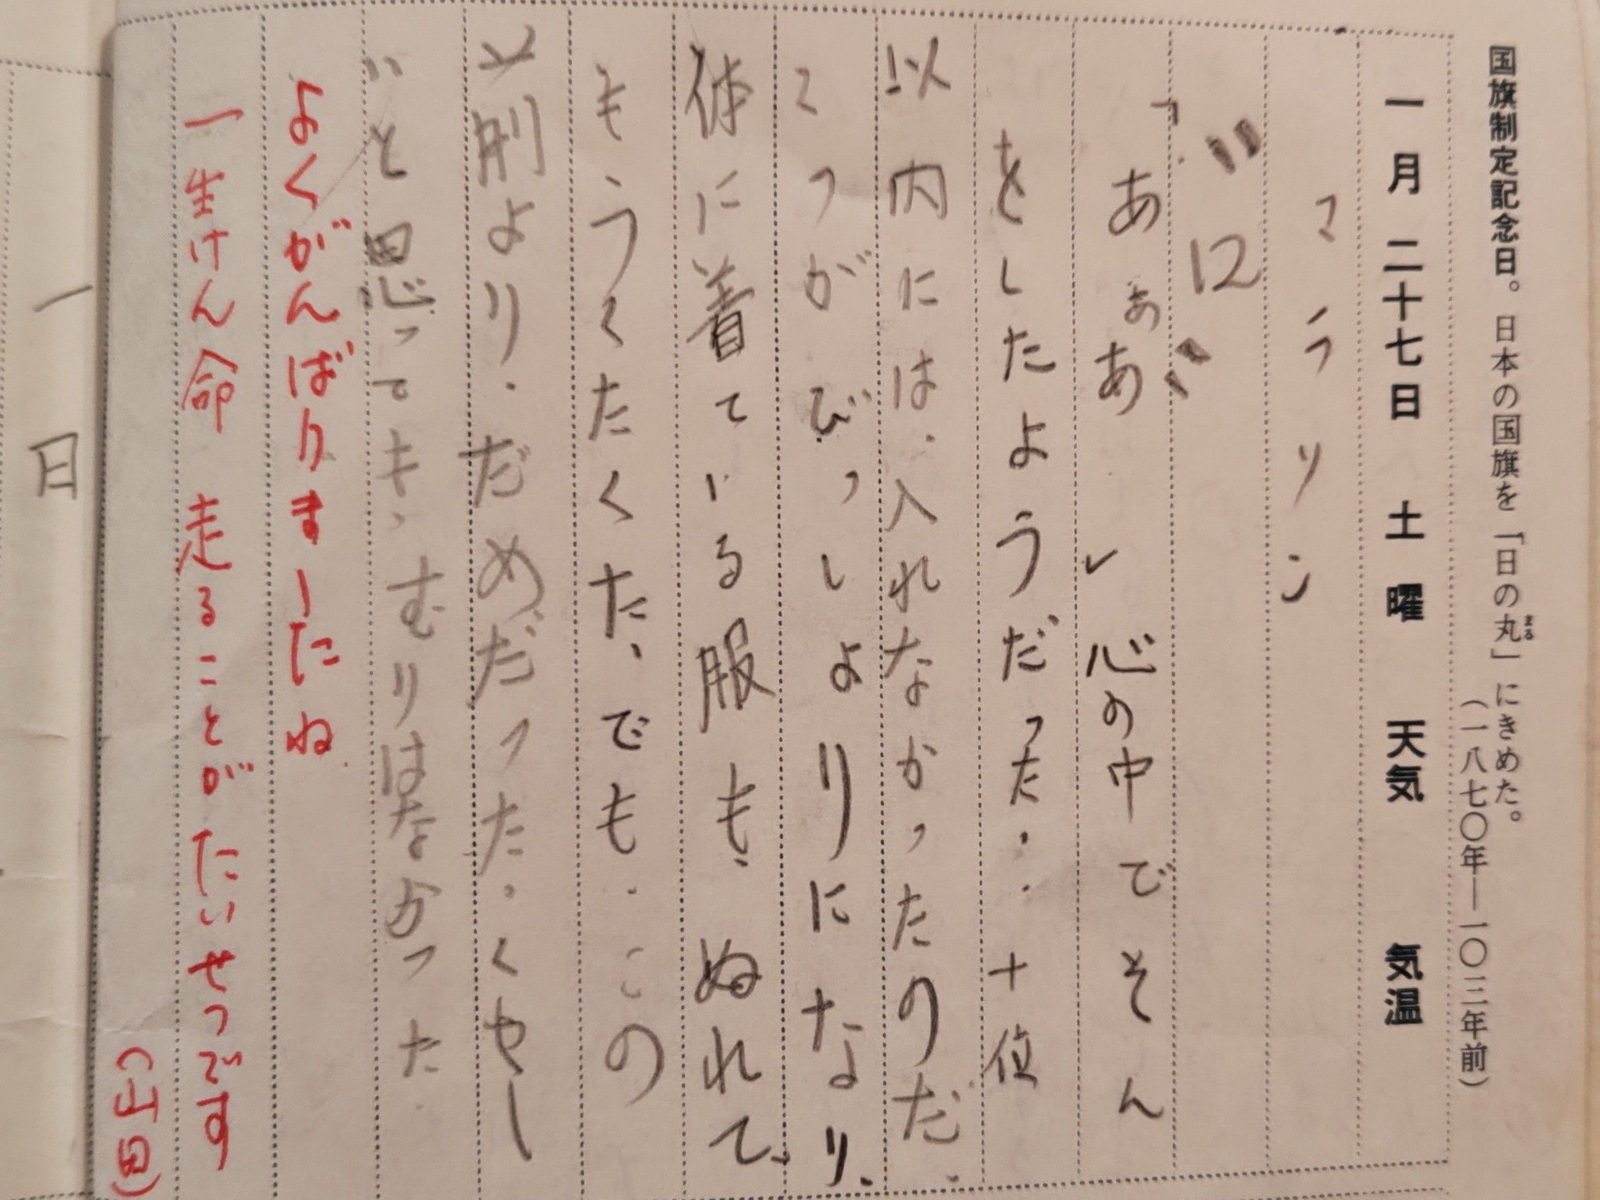 国旗制定記念日。日本の国旗を「日の丸」にきめた。
まる
(一八七〇年―一〇三年前)
一月二十七日 土曜 天気 気温
マラソン
〃12〃
「あぁあ」心の中でそん
をしたようだった。十位
以内には、入れなかったのだ。
くつがびっしょりになり、
体に着ている服も、ぬれて、
もうくたくた、でも、この
前より、だめだった、くやし
いと思ってもむりはなかった
よくがんばりましたね
一生けん命 走ることがたいせつです
(山田)
一日